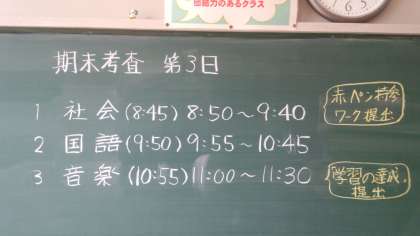 団結力のあるクラス
期末考査 第3日
1 社会(8:45) 8:50～9:40
赤ペン持参
ワーク提出
2 国語(9:50) 9:55～10:45
3 音楽(10:55) 11:00～11:30
学習の達成.
提出